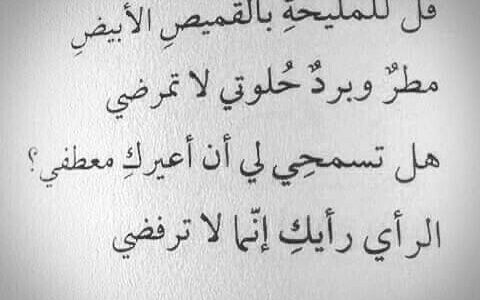 قل للمليحةِ بالقميصِ الأبيضِ
مطرٌ وبردٌ حُلوتي لا تمرضي
هل تسمحِي لي أن أعيركِ معطفي؟
الرأي رأيكِ إنّما لا ترفضي